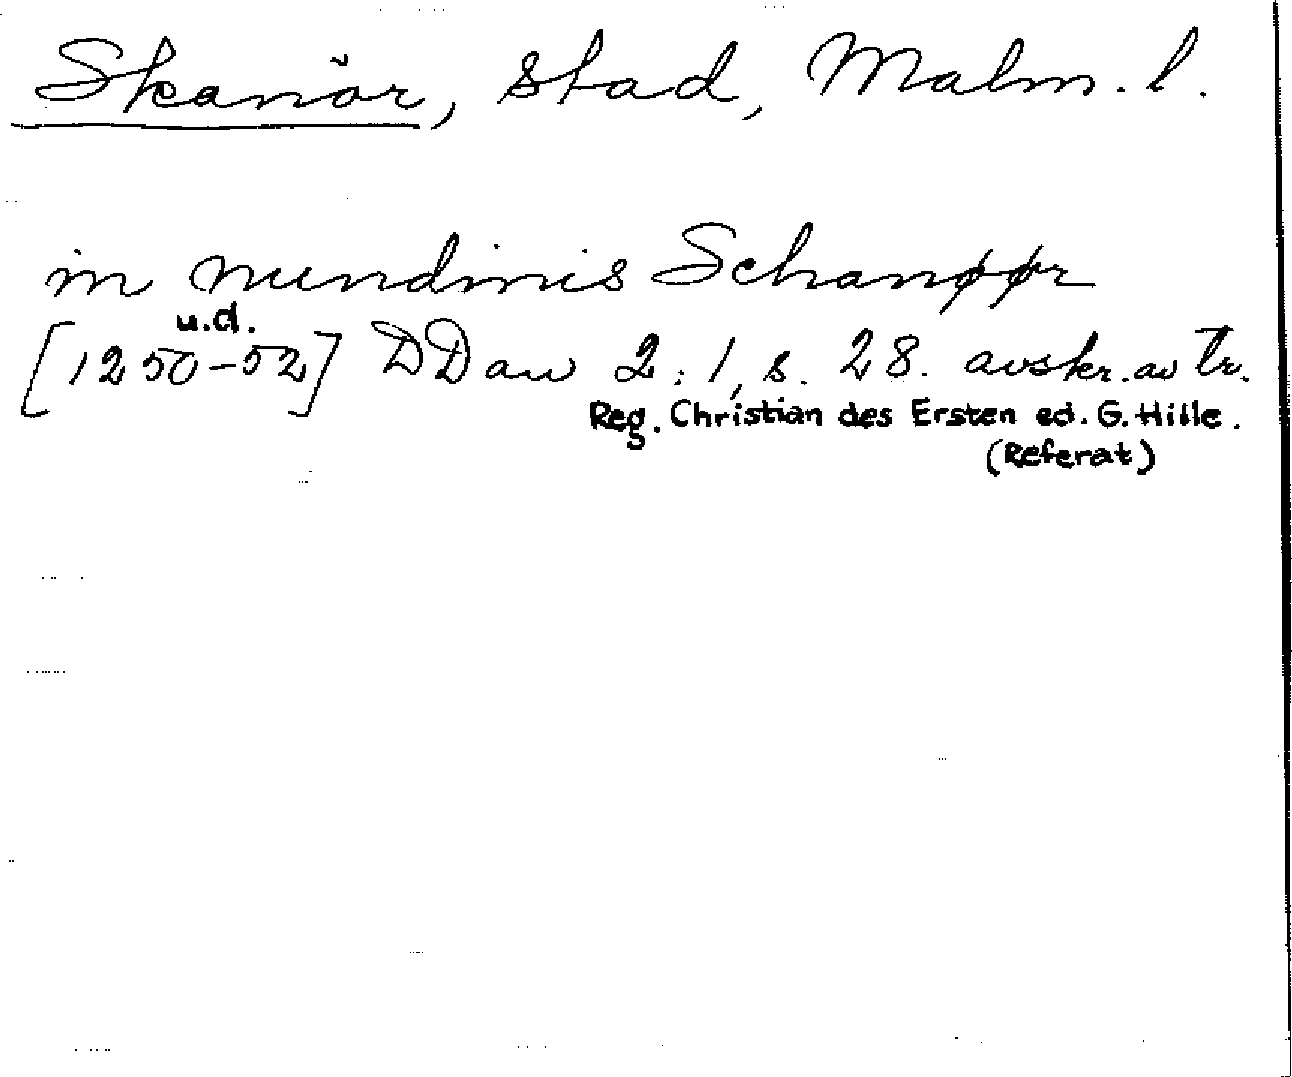 Skanör, stad, Malm. l.
in nundinis Schanøør
u.d.
[1250-52] DDan 2:1, s. 28. avskr. av Tr.
Reg. Christian des Ersten ed. G. Hille.
(Referat)